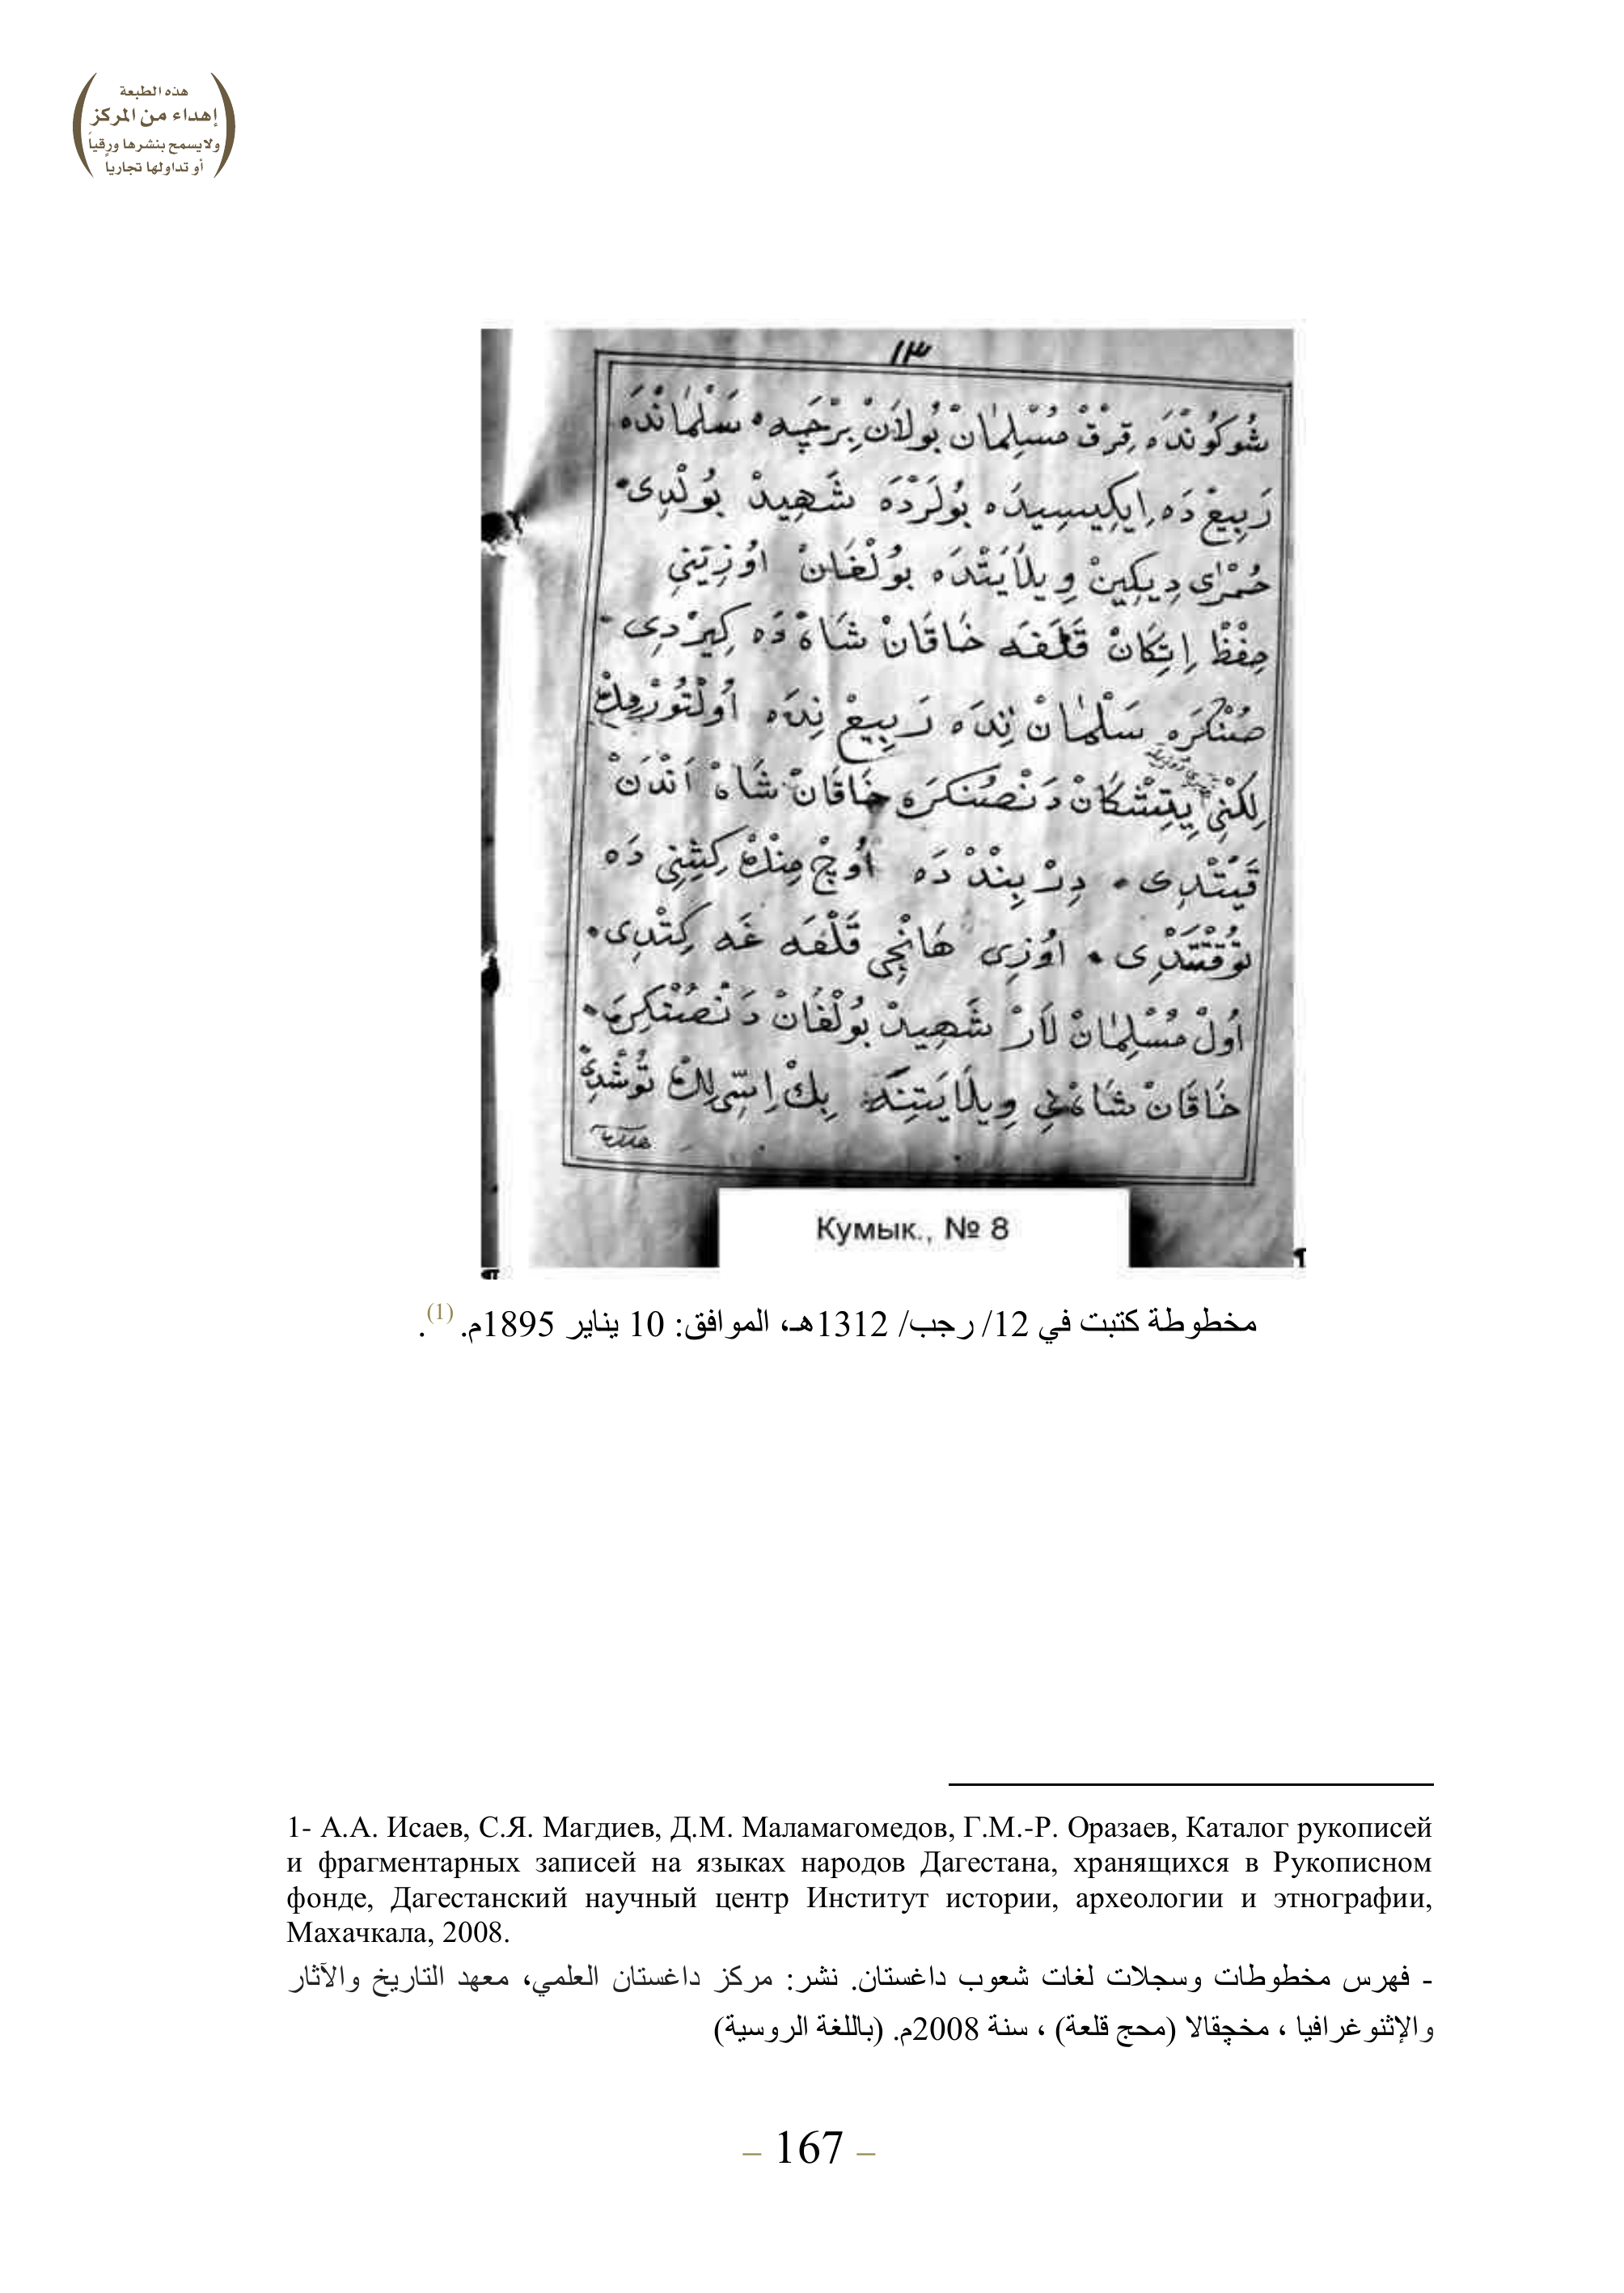 هذه الطبعة
إهداء من المركز
ولايسمح بنشرها ورقياً
أو تداولها تجارياً
١٣
شُوكُونْدَه قِرْقْ مُسْلِمَانْ بُولَانْ بِرْجَيه سَلْمَانْدَه
رَبِيعْ دَه اِيكِيسِيدَه بُولَرْدَه شَهِيدْ بُولْدِى
حُمْرَاى دِيكِينْ وِيلَايَتْدَه بُولْغَانْ اوُزِيَتِنِي
حِفْظْ اِتِكَانْ قَلَعَه خَاقَانْ شَاهْ دَه كِيرْدِى
صُنْكرَه سَلْمَانْ نِدَه رَبِيعْ نِدَه
يِتِشْكَانْ دَنْصُنكرَه خَاقَانْ شَاهْ اَنْدَنْ
قَيْتْدِى دِرْبِنْدْ دَه اُوچْ مِنْكْ كِشِنِي دَه
توُقْتَتْدِى اوُزِى هَانْجِي قَلْعَه غَه كِتْدِى
اُولْ مُسْلِمَانْ لَارْ شَهِيدْ بُولْغَانْ دَنْصُنْكرَه
خَاقَانْ شَاهْنِي وِيلَايَتِنَه بِكْ اِسِّى لِكْ تُوشْدِى
Кумык., № 8
مخطوطة كتبت في 12/ رجب/ 1312هـ، الموافق: 10 يناير 1895م. (1).
1- А.А. Исаев, С.Я. Магдиев, Д.М. Маламагомедов, Г.М.-Р. Оразаев, Каталог рукописей
и фрагментарных записей на языках народов Дагестана, хранящихся в Рукописном
фонде, Дагестанский научный центр Институт истории, археологии и этнографии,
Махачкала, 2008.
- فهرس مخطوطات وسجلات لغات شعوب داغستان. نشر: مركز داغستان العلمي، معهد التاريخ والآثار
والإثنوغرافيا ، مخچقالا (محج قلعة) ، سنة 2008م. (باللغة الروسية)
– 167 –